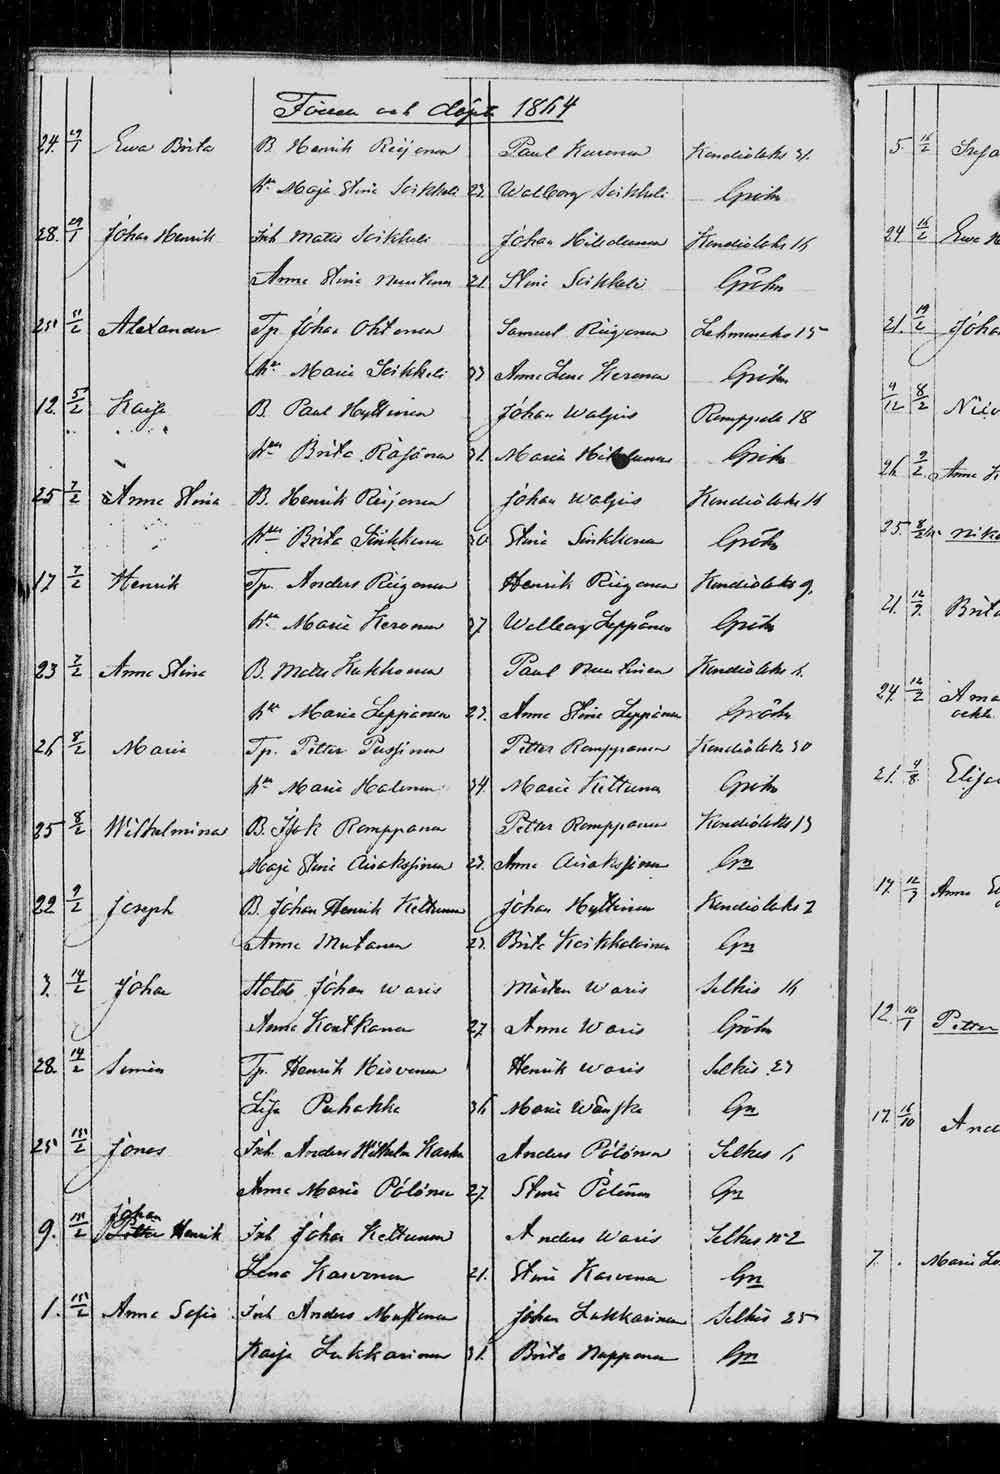 Födde och döpte 1864
24. 29/1 Ewa Brita B. Henrik Reijonen Paul Kuronen Kondiolaks 31.
hu Maja Stina Soikkeli 23. Walborg Soikkeli Gröhn
28. 29/1 Johan Henrik Inh Mats Soikkeli Johan Hildunen Kondiolaks 16
Anna Stina Nuutinen 21. Stina Soikkeli Gröhn
25 Alexander Tp. Johan Ohtonen Samuel Reijonen Lehmonaho 15
hu Maria Soikkeli 33 Anna Lena Keronen Gröhn
12. 5/2 Kaisa B. Paul Hyttinen Johan Waljus Romppala 18
hu Brita Räsänen 31. Maria Gröhn
25 7/2 Anna Stina B. Henrik Reijonen Johan Waljus Kondiolaks 16
hu Brita Sinkkonen 30 Stina Sinkkonen Gröhn
17 7/2 Henrik Tp. Anders Reijonen Henrik Reijonen Kondiolaks 9.
hu Maria Keronen 37. Walborg Leppänen Gröhn
23 7/2 Anna Stina B. Mats Kukkonen Paul Nuutinen Kondiolaks 6.
hu Maria Leppänen 23. Anna Stina Leppänen Gröhn
26 8/2 Maria Tp. Petter Pussinen Petter Romppanen Kondiolaks 30
hu Maria Halonen 34. Maria Kettunen Gröhn
25 8/2 Wilhelmina B. Isak Romppanen Petter Romppanen Kondiolaks 13
Maja Stina Airaksinen 23. Anna Airaksinen Gn
22 9/2 Joseph B. Johan Henrik Kettunen Johan Hyttinen Kondiolaks 2
Anna Mutanen 23. Brita Keikkalainen Gn
3. 14/2 Johan Johan Waris Mårten Waris Selkie 16
Anna Kontkanen 27 Anna Waris Gröhn
28. 14/2 Simon Tp. Henrik Hirvonen Henrik Waris Selkis 23
Lisa Puhakka 36 Maria Gn
25 15/2 Jonas Inh. Anders Wilhelm Anders Pölönen Selkis 6
Anna Maria Pölönen 27. Stina Pölönen Gn
Johan
9. 15/2 Petter Henrik Inh Johan Kettunen Anders Waris Selkes no 2
Lena Karvonen 21. Stina Karvonen Gn
1. 15/2 Anna Sofia Inh Anders Mustonen Johan Lukkarinen Selkis 25
Kaisa Lukkarinen 31. Brita Nuppanen Gn
5 16/2
24 16/2 Ewa
21. 19/2 Joha
9/12 8/2
26. 9/2 Anna K
25. 8/2 Nik
21. 12/9. Brita
24. 12/2 Ama
21. 4/8. Elisa
17. 12/3 Anna
12. 10/1 Petter
17. 16/10 And
7. Maria